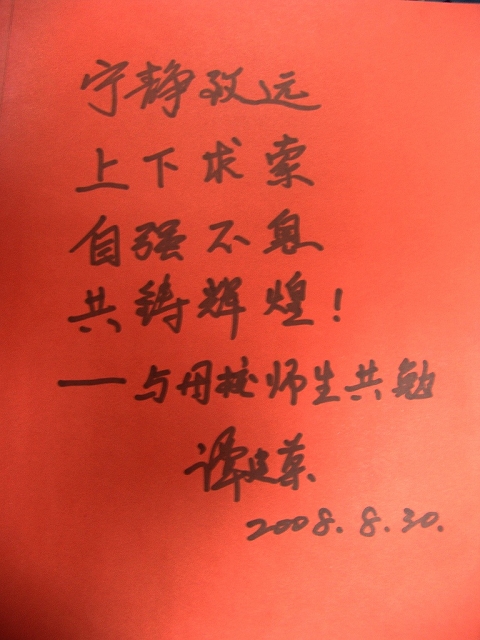 宁静致远
上下求索
自强不息
共铸辉煌！
——与母校师生共勉
谭建
2008.8.30.